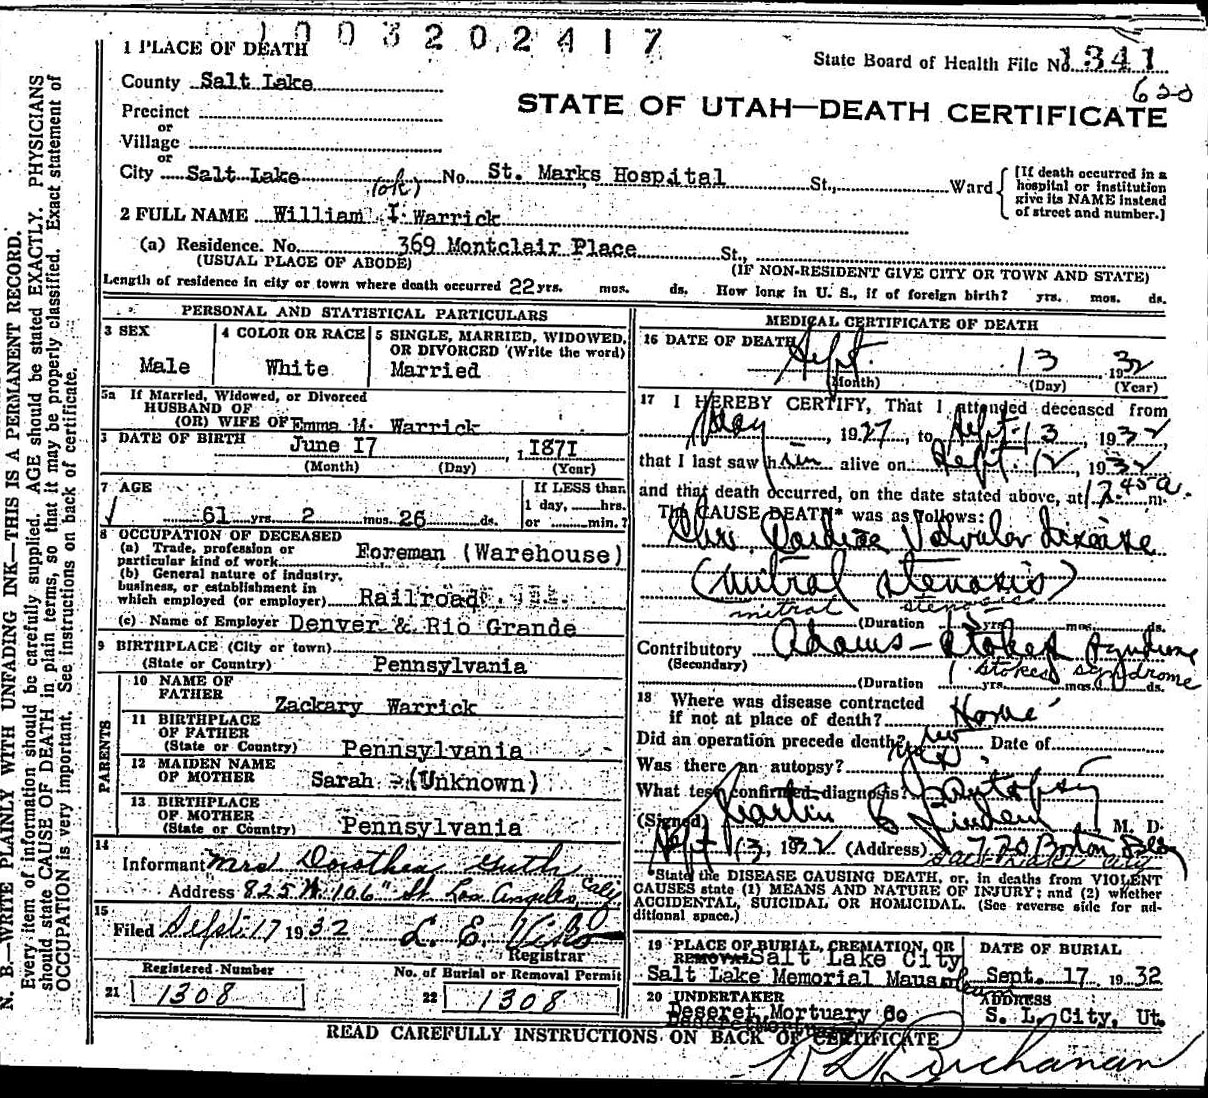 1003202417
1 PLACE OF DEATH
State Board of Health File No. 1341
County Salt Lake
Precinct
or
Village
or
STATE OF UTAH—DEATH CERTIFICATE
City Salt Lake (ok) No. St. Marks Hospital St., Ward
[If death occurred in a
hospital or institution
give its NAME instead
of street and number.]
2 FULL NAME William I Warrick
(a) Residence. No. 369 Montclair Place St.,
(USUAL PLACE OF ABODE) (IF NON-RESIDENT GIVE CITY OR TOWN AND STATE)
Length of residence in city or town where death occurred 22 yrs. mos. ds. How long in U. S., if of foreign birth? yrs. mos. ds.
PERSONAL AND STATISTICAL PARTICULARS
3 SEX
Male
4 COLOR OR RACE
White
5 SINGLE, MARRIED, WIDOWED,
OR DIVORCED (Write the word)
Married
5a If Married, Widowed, or Divorced
HUSBAND OF
(OR) WIFE OF Emma M. Warrick
DATE OF BIRTH June 17, 1871
(Month) (Day) (Year)
7 AGE
61 yrs. 2 mos. 26 ds.
If LESS than
1 day, hrs.
or min.?
8 OCCUPATION OF DECEASED
(a) Trade, profession or
particular kind of work Foreman (Warehouse)
(b) General nature of industry,
business, or establishment in
which employed (or employer) Railroad
(c) Name of Employer Denver & Rio Grande
9 BIRTHPLACE (City or town)
(State or Country) Pennsylvania
PARENTS
10 NAME OF
FATHER Zackary Warrick
11 BIRTHPLACE
OF FATHER
(State or Country) Pennsylvania
12 MAIDEN NAME
OF MOTHER Sarah - (Unknown)
13 BIRTHPLACE
OF MOTHER
(State or Country) Pennsylvania
14
Informant Mrs Dorothea Guth
Address 825 W. 106" St Los Angeles, Caly
15
Filed Sept. 17 1932 L. E.
Registrar
Registered Number
21 1308
No. of Burial or Removal Permit
22 1308
MEDICAL CERTIFICATE OF DEATH
16 DATE OF DEATH
Sept. 13 1932
(Month) (Day) (Year)
17 I HEREBY CERTIFY, That I attended deceased from
May, 1927, to Sept. 13, 1932
that I last saw him alive on Sept. 12, 1932
and that death occurred, on the date stated above, at 12 45 a. m.
The CAUSE DEATH* was as follows:
Chr. Cardiac Valvular Disease
(Mitral Stenosis)
mitral stenosis
(Duration yrs. mos. ds.
Contributory Adams-Stokes Syndrome
(Secondary) Stokes syndrome
(Duration 1 yrs. mos. ds.
18 Where was disease contracted
if not at place of death? Home
Did an operation precede death? no Date of
Was there an autopsy? Yes
What test confirmed diagnosis? Autopsy
(Signed) Martin C Lindem M. D.
Sept 13, 1932 (Address) 720 Boston Bldg
Salt Lake City
*State the DISEASE CAUSING DEATH, or, in deaths from VIOLENT
CAUSES state (1) MEANS AND NATURE OF INJURY; and (2) whether
ACCIDENTAL, SUICIDAL OR HOMICIDAL. (See reverse side for ad-
ditional space.)
19 PLACE OF BURIAL, CREMATION, OR
REMOVAL Salt Lake City
Salt Lake Memorial Mausoleum
DATE OF BURIAL
Sept. 17 1932
20 UNDERTAKER
Deseret Mortuary Co
Deseret Mortuary
ADDRESS
S. L. City, Ut.
READ CAREFULLY INSTRUCTIONS ON BACK OF CERTIFICATE
Buchanan
N. B.—WRITE PLAINLY WITH UNFADING INK—THIS IS A PERMANENT RECORD.
Every item of information should be carefully supplied. AGE should be stated EXACTLY. PHYSICIANS
should state CAUSE OF DEATH in plain terms, so that it may be properly classified. Exact statement of
OCCUPATION is very important. See instructions on back of certificate.